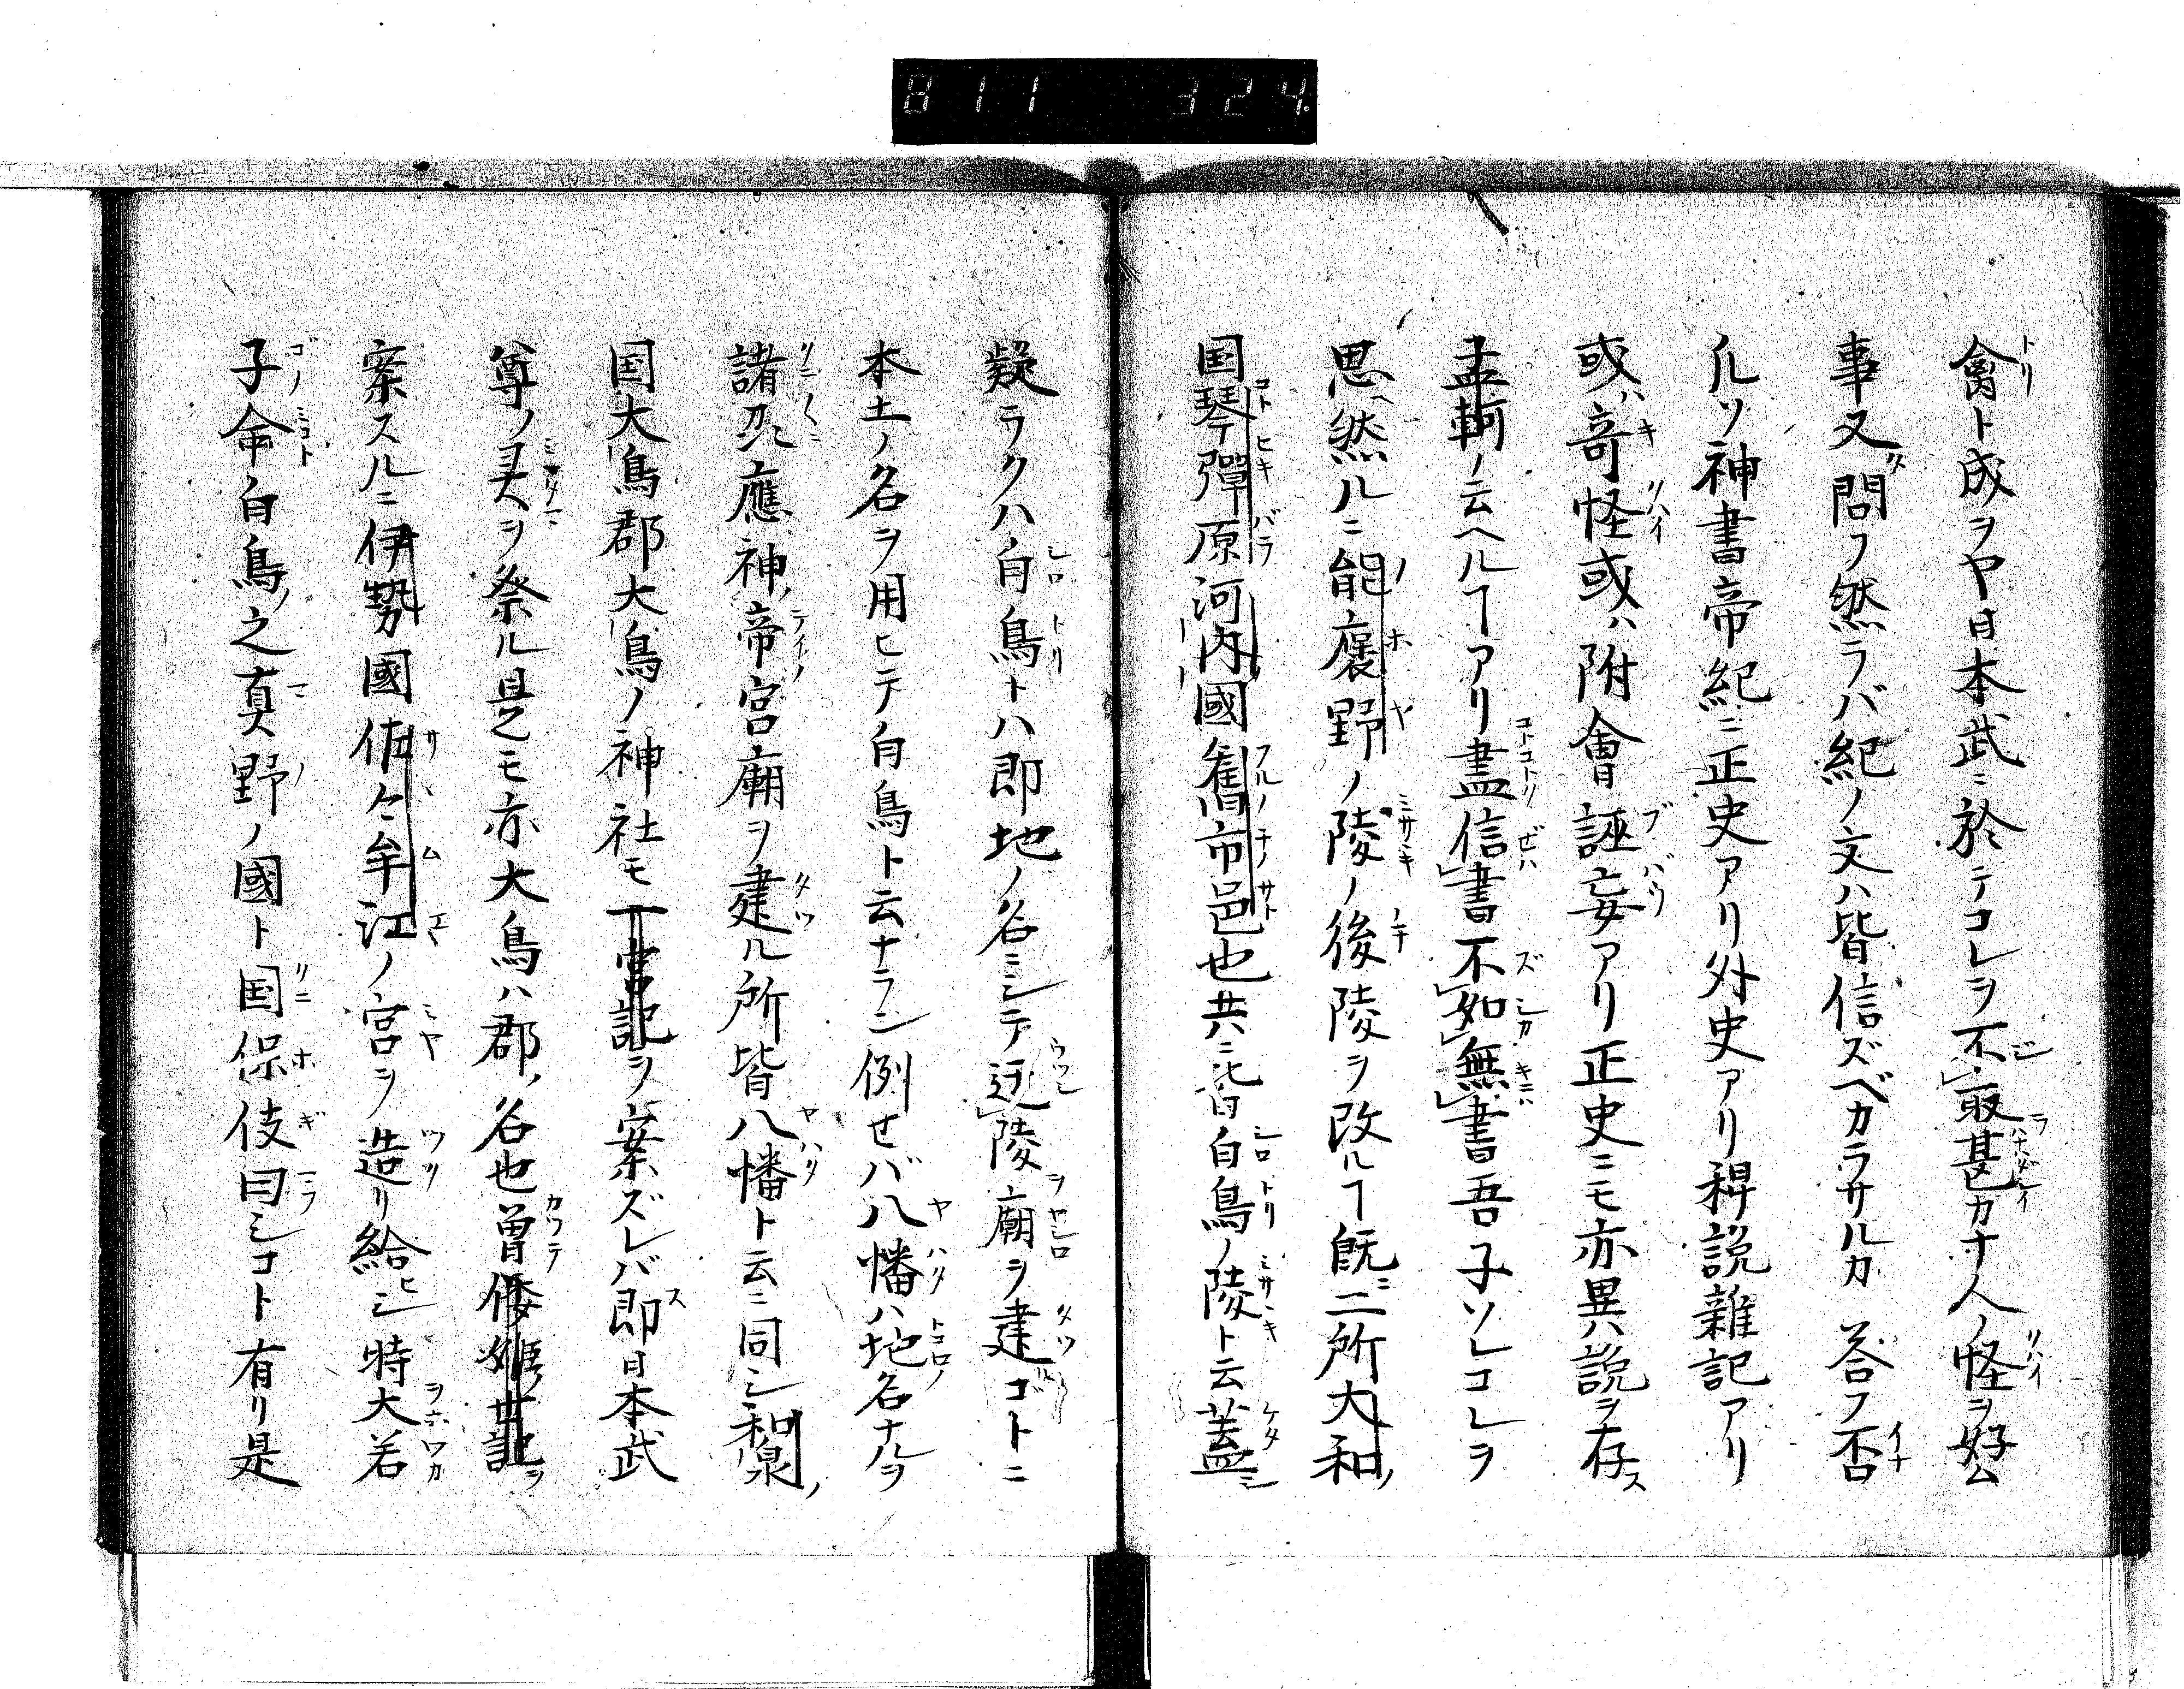 811 324
禽ト成ヲヤ日本武ニ於テコレヲ不最甚カナ人ノ怪ヲ好ム
事又問フ然ラバ紀ノ文ハ皆信ズベカラサルカ答フ否
凡ソ神書帝紀ニ正史アリ外史アリ稗説雜記アリ
或ハ奇怪或ハ附會誣妄アリ正史ニモ亦異説ヲ存ス
孟軻ノ云ヘルヿアリ盡信書不如無書吾子ソレコレヲ
思ヘ然ルニ能褒野ノ陵ノ後陵ヲ改ルヿ既ニ二所大和ノ
国琴彈原河内國舊市邑也共ニ皆白鳥ノ陵ト云蓋シ
疑ラクハ白鳥トハ即地ノ名ニシテ遷陵廟ヲ建ルゴトニ
本土ノ名ヲ用ヒテ白鳥ト云ナラン例セバ八幡ハ地名ナルヲ
諸州應神帝ノ宮廟ヲ建ル所皆八幡ト云ニ同シ和泉ノ
国大鳥郡大鳥ノ神社モ一宮記ヲ案ズレバ即日本武
尊ノ灵ヲ祭ル是モ亦大鳥ハ郡ノ名也曽倭姫世記ヲ
案スルニ伊勢國佐々牟江ノ宮ヲ造リ給ヒシ時大若
子命白鳥ノ之真野ノ國ト国保伎曰シコト有リ是